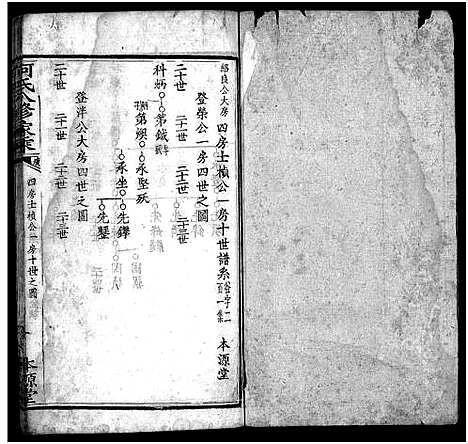 紹良公大房 四房士楨公一房十世譜系 本源堂
登榮公一房四世之圖
二十世 二十一世 二十二世 二十三世
科炳 第鐵
第煥 承堅殀
承坐 先鐸
先鋆
登泮公大房四世之圖
二十世 二十一世 二十二世 二十三世
何氏八修家乘
四房士楨公一房十世之圖
本源堂